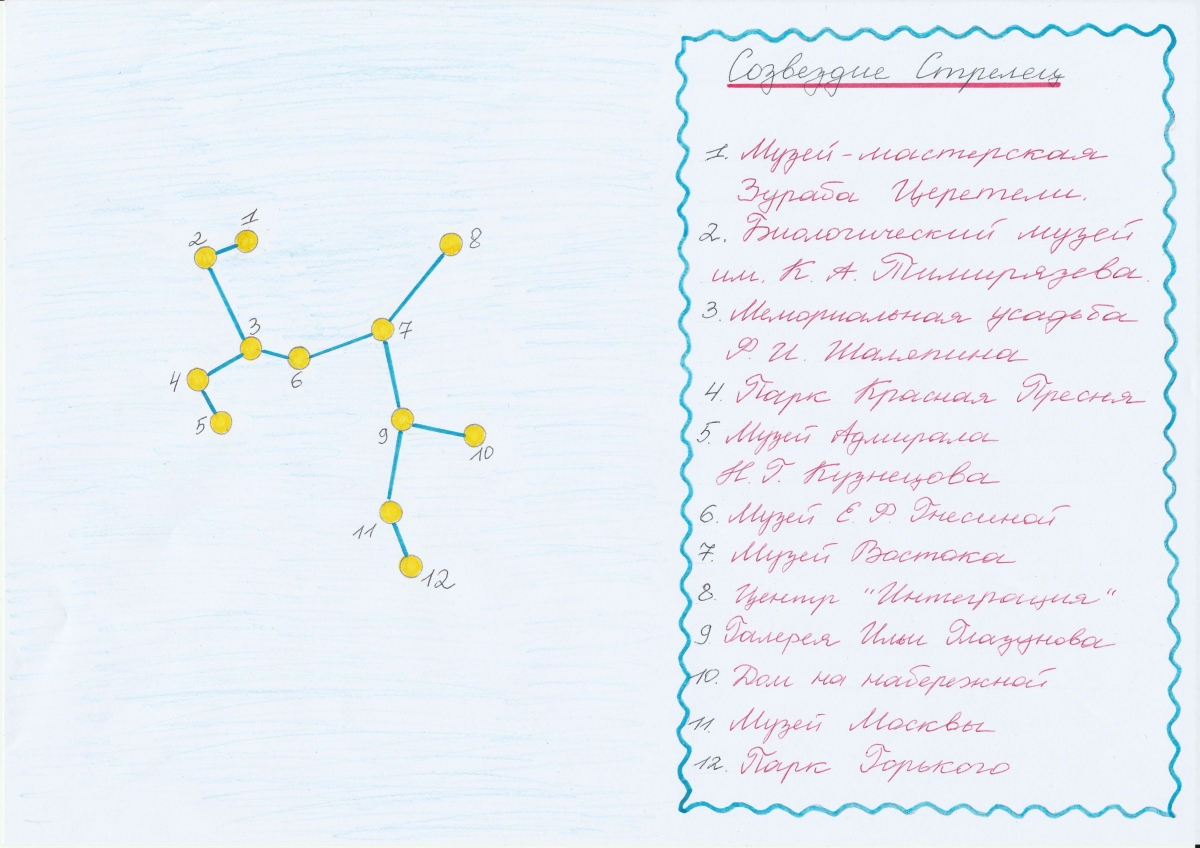 Созвездие Стрелец
1. Музей-мастерская
Зураба Церетели.
2. Биологический музей
им. К. А. Тимирязева.
3. Мемориальная усадьба
Ф. И. Шаляпина
4. Парк Красная Пресня
5. Музей Адмирала
Н. Г. Кузнецова
6. Музей Е. Ф. Гнесиной
7. Музей Востока
8. Центр "Интеграция"
9. Галерея Ильи Глазунова
10. Дом на набережной
11. Музей Москвы
12. Парк Горького
1
2
8
3
7
6
4
5
9
10
11
12